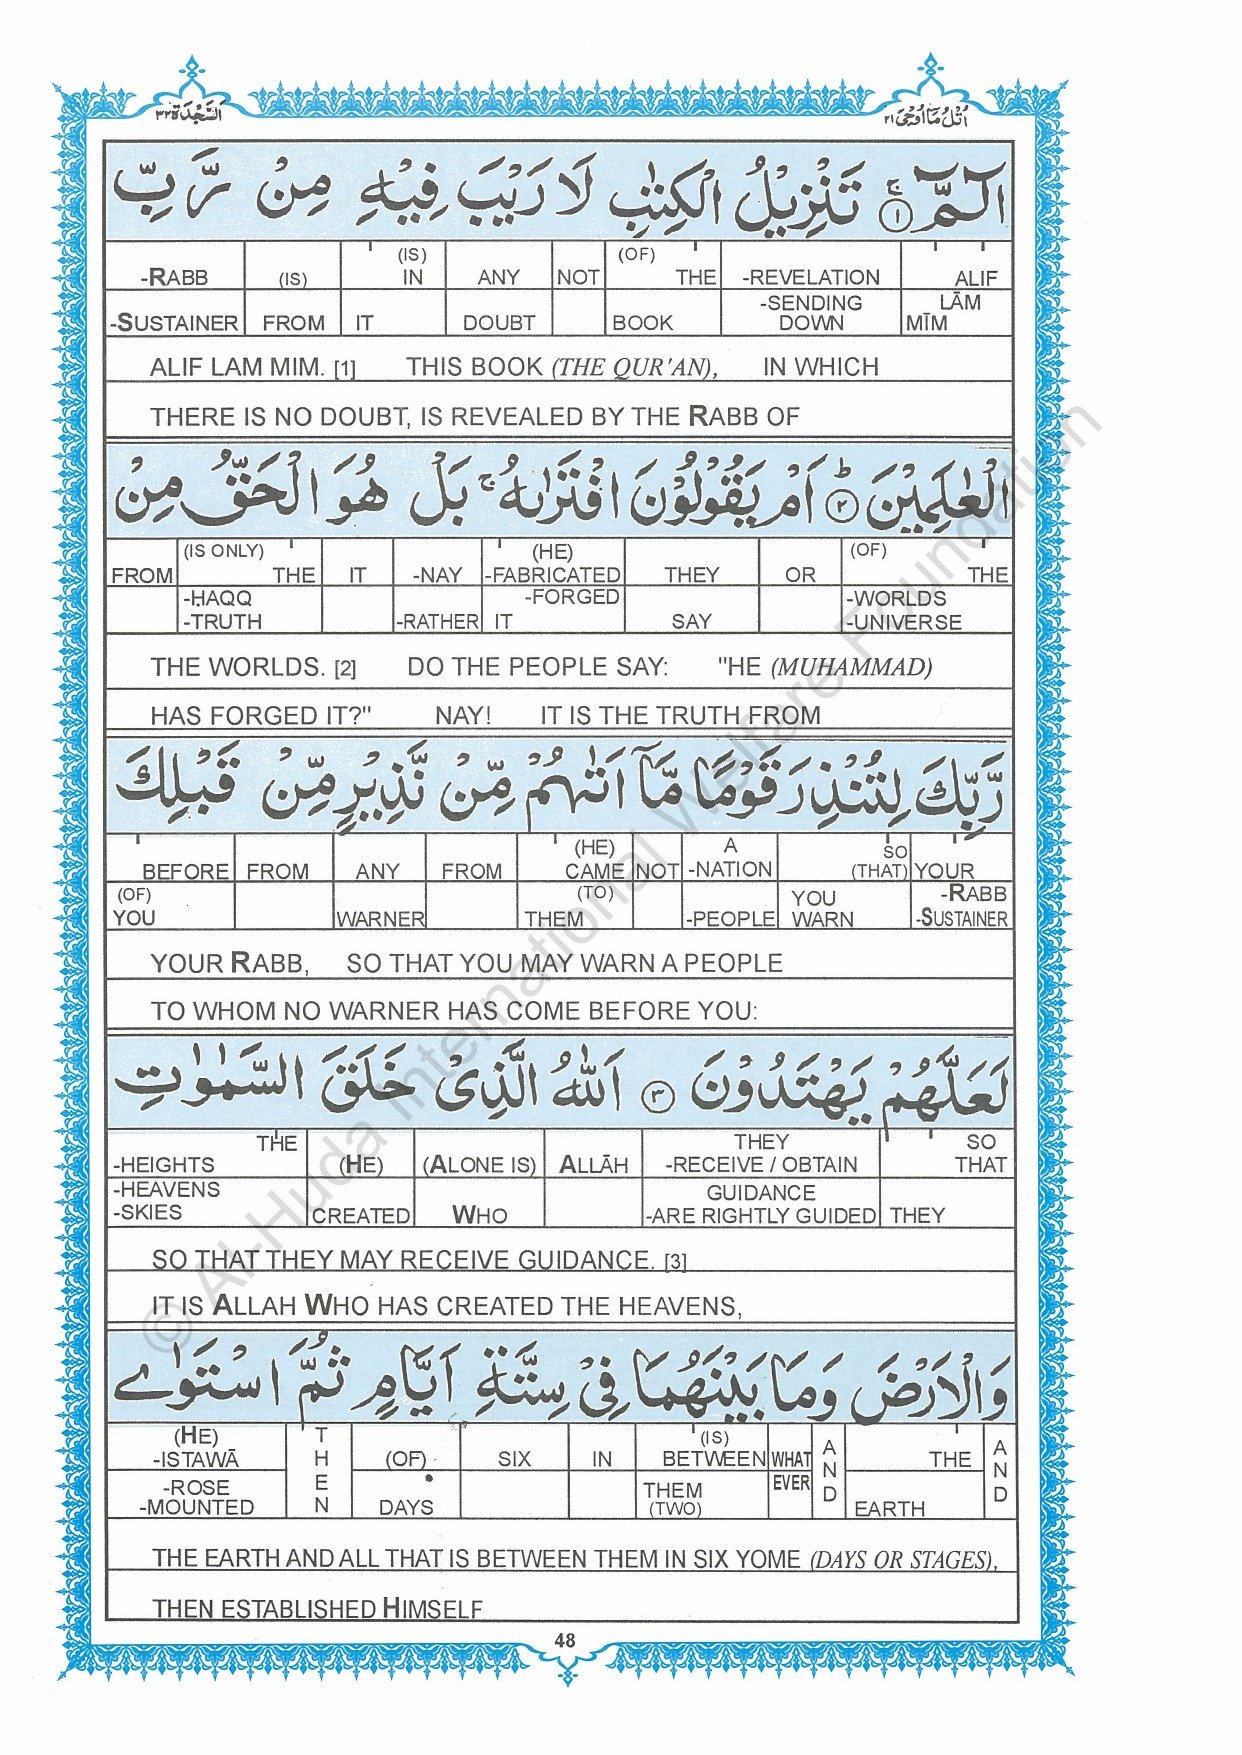 السَّجْدَة ٣٢
اُتْلُ مَا اُوْحِیَ ٢١
الٓمّٓ ۚ ① تَنْزِيْلُ الْكِتٰبِ لَا رَيْبَ فِيْهِ مِنْ رَّبِّ
-RABB (IS) (IS) IN ANY NOT (OF) THE -REVELATION ALIF
-SUSTAINER FROM IT DOUBT BOOK -SENDING DOWN LĀM MĪM
ALIF LAM MIM. [1] THIS BOOK (THE QUR'AN), IN WHICH
THERE IS NO DOUBT, IS REVEALED BY THE RABB OF
الْعٰلَمِيْنَ ② ؕ اَمْ يَقُوْلُوْنَ افْتَرٰىهُ ۚ بَلْ هُوَ الْحَقُّ مِنْ
FROM (IS ONLY) THE IT -NAY (HE) -FABRICATED THEY OR (OF) THE
-ḤAQQ -TRUTH -RATHER -FORGED IT SAY -WORLDS -UNIVERSE
THE WORLDS. [2] DO THE PEOPLE SAY: "HE (MUHAMMAD)
HAS FORGED IT?" NAY! IT IS THE TRUTH FROM
رَّبِّكَ لِتُنْذِرَ قَوْمًا مَّاۤ اَتٰىهُمْ مِّنْ نَّذِيْرٍ مِّنْ قَبْلِكَ
BEFORE FROM ANY FROM (HE) CAME NOT A -NATION SO (THAT) YOUR
(OF) YOU WARNER (TO) THEM -PEOPLE YOU WARN -RABB -SUSTAINER
YOUR RABB, SO THAT YOU MAY WARN A PEOPLE
TO WHOM NO WARNER HAS COME BEFORE YOU:
لَعَلَّهُمْ يَهْتَدُوْنَ ③ اَللّٰهُ الَّذِیْ خَلَقَ السَّمٰوٰتِ
THE -HEIGHTS (HE) (ALONE IS) ALLĀH THEY -RECEIVE / OBTAIN SO THAT
-HEAVENS -SKIES CREATED WHO GUIDANCE -ARE RIGHTLY GUIDED THEY
SO THAT THEY MAY RECEIVE GUIDANCE. [3]
IT IS ALLAH WHO HAS CREATED THE HEAVENS,
وَالْاَرْضَ وَمَا بَيْنَهُمَا فِیْ سِتَّةِ اَيَّامٍ ثُمَّ اسْتَوٰی
(HE) -ISTAWĀ THEN (OF) SIX IN (IS) BETWEEN WHAT AND THE AND
-ROSE -MOUNTED DAYS THEM (TWO) EVER EARTH
THE EARTH AND ALL THAT IS BETWEEN THEM IN SIX YOME (DAYS OR STAGES),
THEN ESTABLISHED HIMSELF
48
© Al-Huda International Welfare Foundation